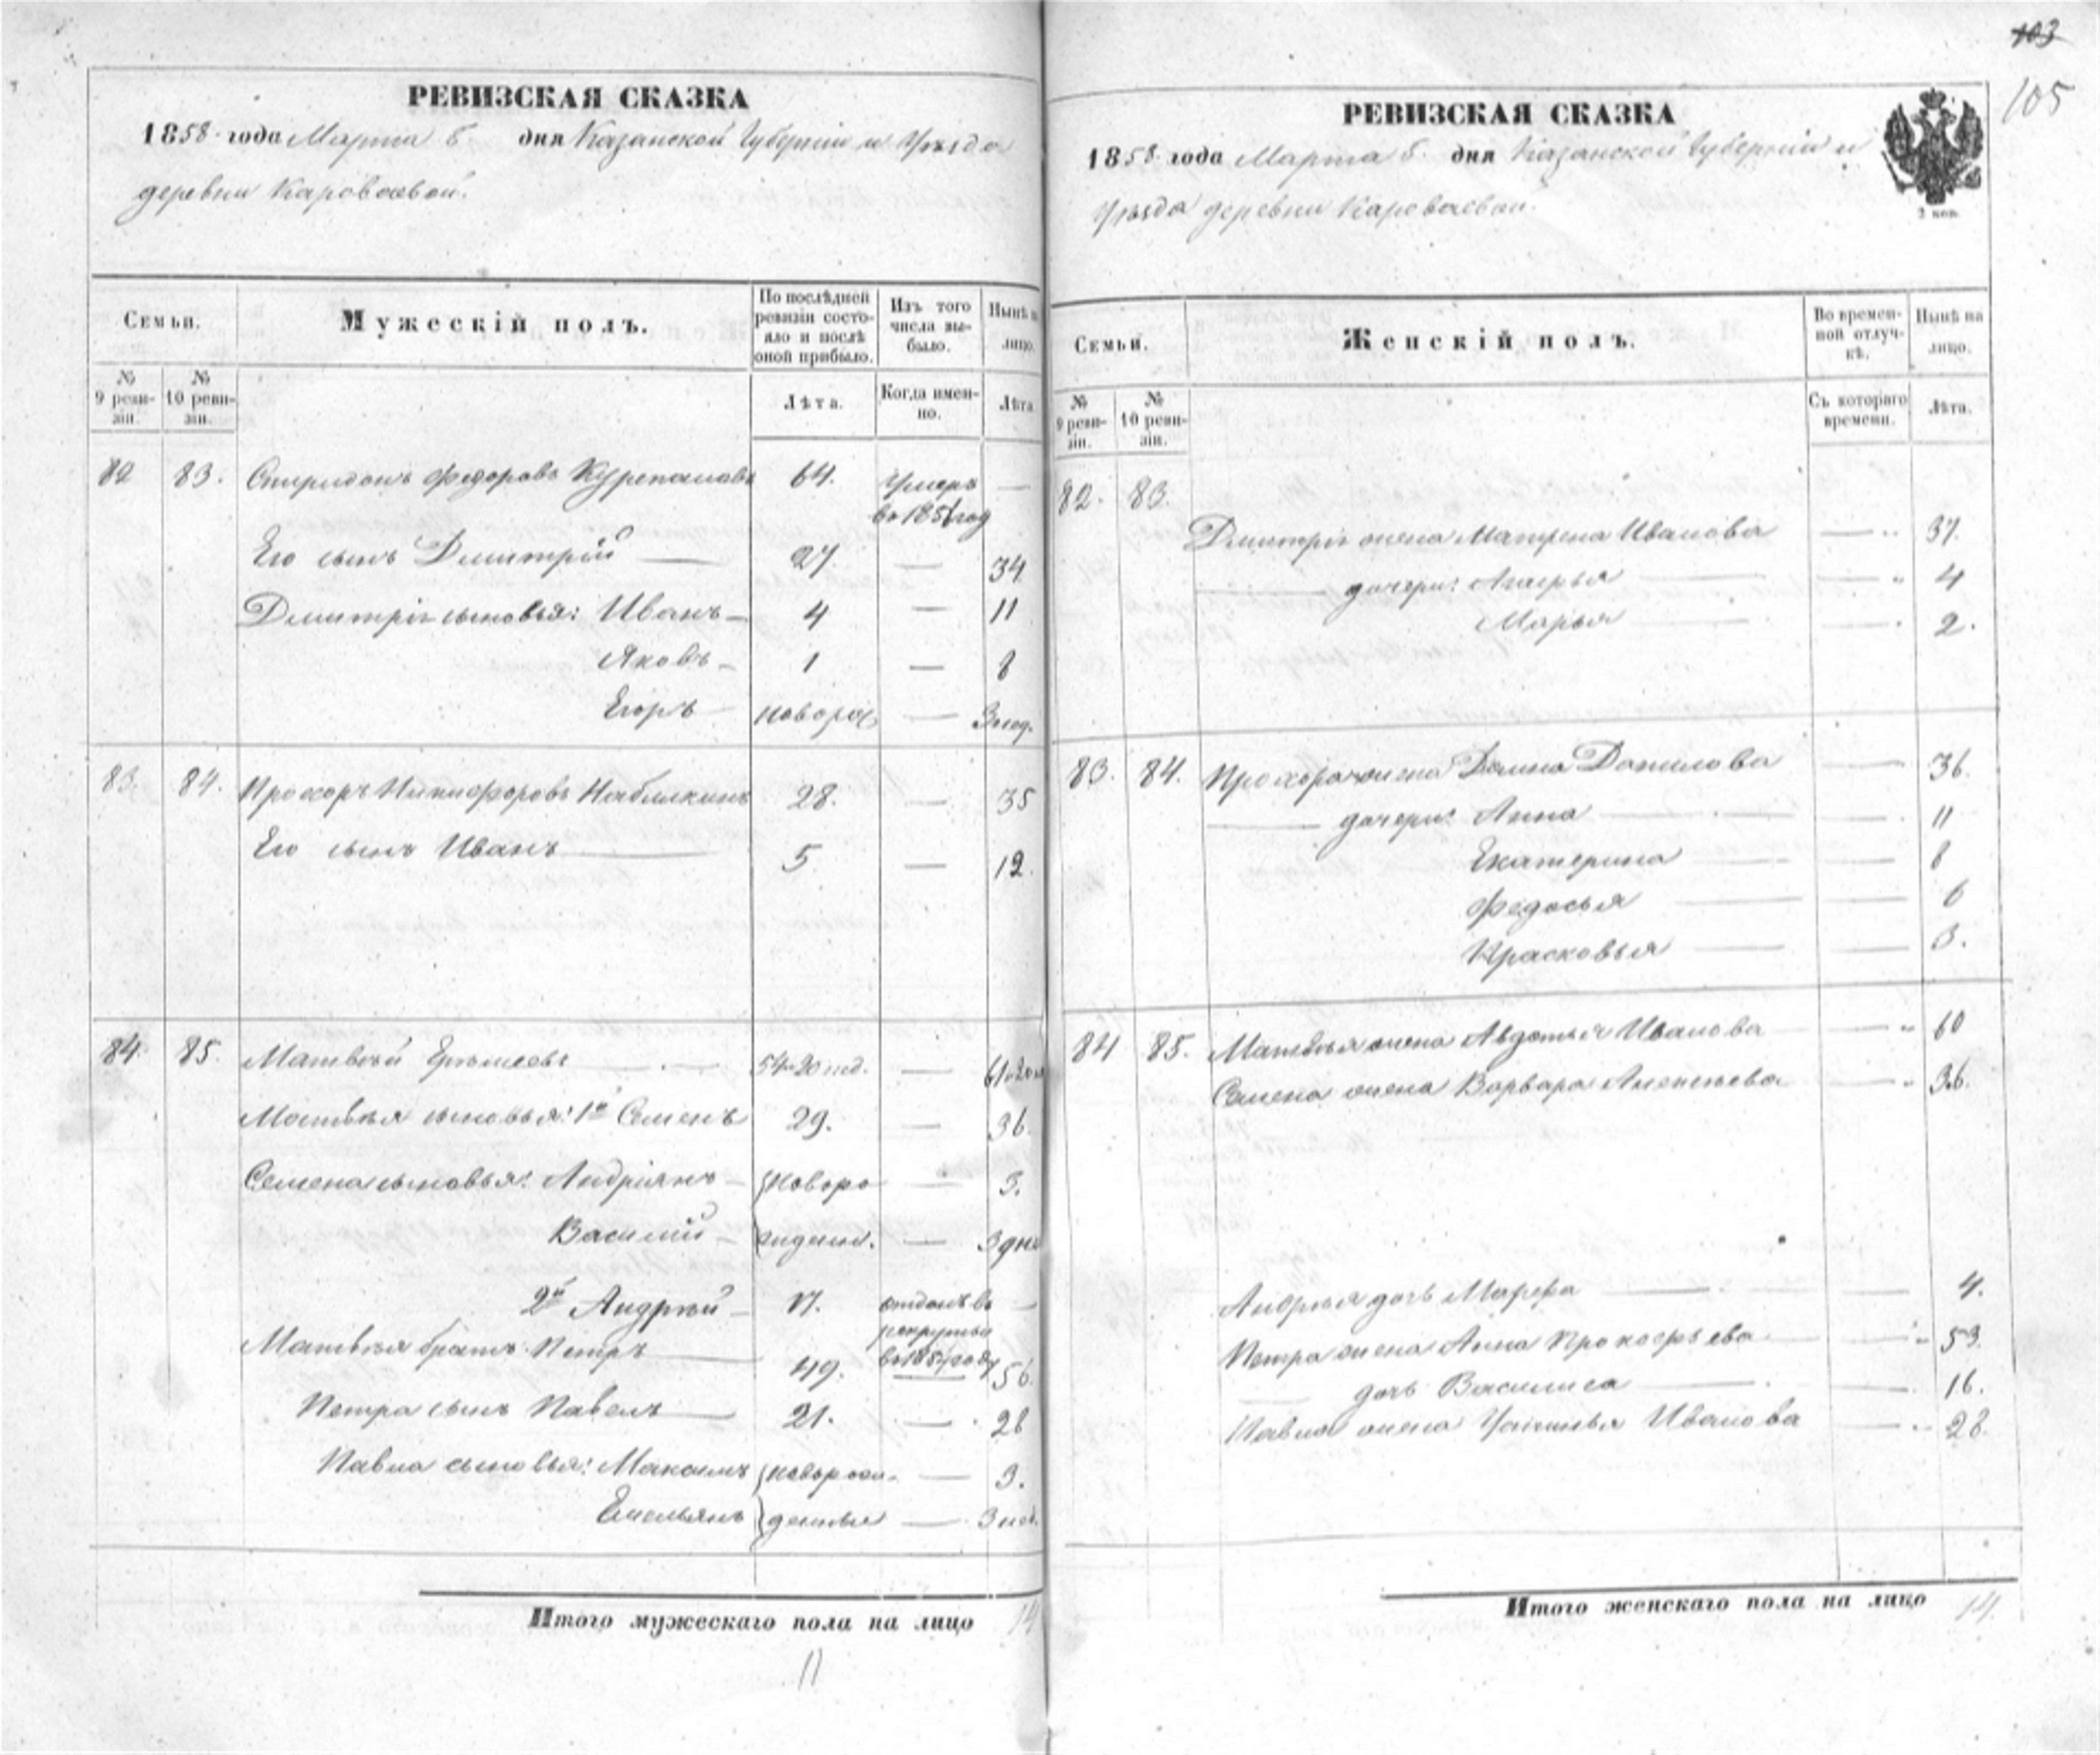 РЕВИЗСКАЯ СКАЗКА
1858 года Марта 6 дня Казанской Губерніи и Уѣзда
деревни Караваевой.
Семьи.
Мужескій полъ.
По послѣдней ревизіи состояло и послѣ оной прибыло.
Изъ того числа выбыло.
Нынѣ на лицо.
№ 9 ревизіи.
№ 10 ревизіи.
Лѣта.
Когда именно.
Лѣта.
82 83. Спиридонъ Федоровъ 64. Умеръ —
Его сынъ Дмитрій — 27. — 34
Дмитрія сыновья: Иванъ — 4 — 11
Яковъ — 1 — 8
Егоръ — новорож — 3 нед.
83. 84. Прохоръ Никифоровъ 28. — 35
Его сынъ Иванъ — 5 — 12.
84. 85. Матвѣй Еремеевъ — 54 — 61
Матвѣя сыновья: 1й Семенъ 29. — 36.
Семена сыновья: Андріянъ — новоро — 3.
Василій — жденн. — 3 дня
2й Андрѣй — 17. отданъ въ —
рекруты
Матвѣя братъ Петръ — 49. — 56.
Петра сынъ Павелъ — 21. — 28
Павла сыновья: Максимъ новорож — 3.
Емельянъ денные — 3 нед.
Итого мужескаго пола на лицо 14
11
103
105
РЕВИЗСКАЯ СКАЗКА
1858 года Марта 6. дня Казанской Губерніи и
Уѣзда деревни Караваевой.
2 коп.
Семьи.
Женскій полъ.
Во временной отлучкѣ.
Нынѣ на лицо.
№ 9 ревизіи.
№ 10 ревизіи.
Съ котораго времени.
Лѣта.
82. 83.
Дмитрія жена Матрена Иванова — 37.
— дочери: — 4
Марья — 2.
83. 84. Прохора жена Данилова — 36.
— дочери: Анна — 11
Екатерина — 8
Федосья — 6
Прасковья — 3.
84 85. Матвѣя жена Авдотья Иванова — 60
Семена жена Варвара — 36.
Андрѣя дочь Марфа — 4.
Петра жена Анна Прокофьева — 53.
— дочь Василиса — 16.
Павла жена Устинья Иванова — 28.
Итого женскаго пола на лицо 14.